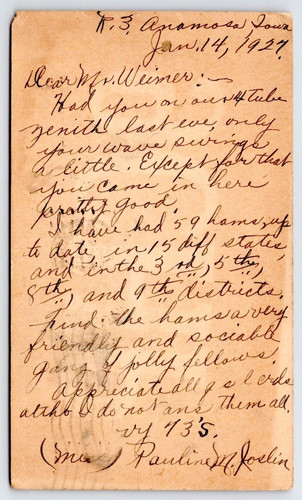 R. 3, Anamosa, Iowa
Jan. 14, 1927.
Dear Mr. Weimer: -
Had you on our 4 tube
zenith last eve, only
your wave swings
a little. Except for that
you came in here
pretty good.
I have had 59 hams, up
to date, in 15 diff states,
and in the 3 rd, 5 th,
8 th, and 9 th districts.
Find the hams a very
friendly and sociable
gang of jolly fellows.
Appreciate all qsl crds
altho I do not ans them all.
vy 73'S.
Pauline M. Joslin